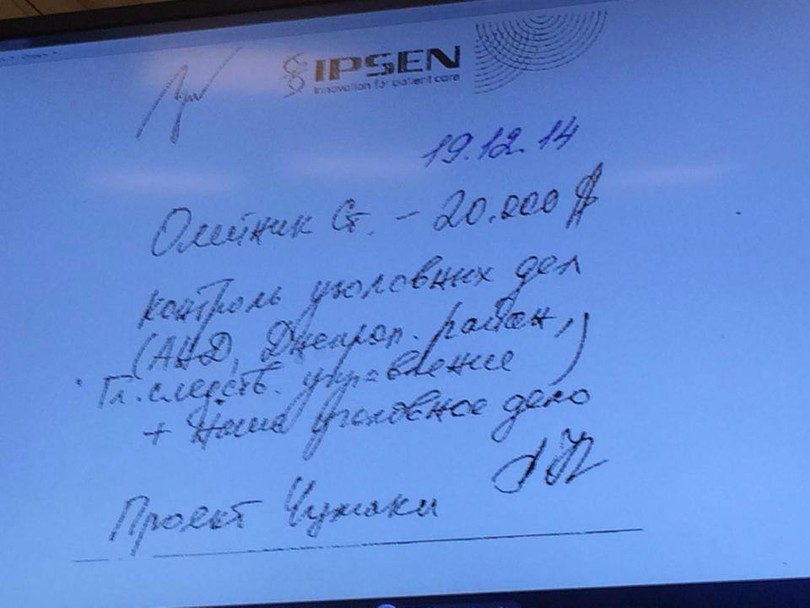 IPSEN
Innovation for patient care
19.12.14
Олейник Ст. – 20.000 $
контроль уголовних дел
(АНД, Днепроп. район,
Гл. следств. управление)
+ наше уголовное дело
Проект Чумаки